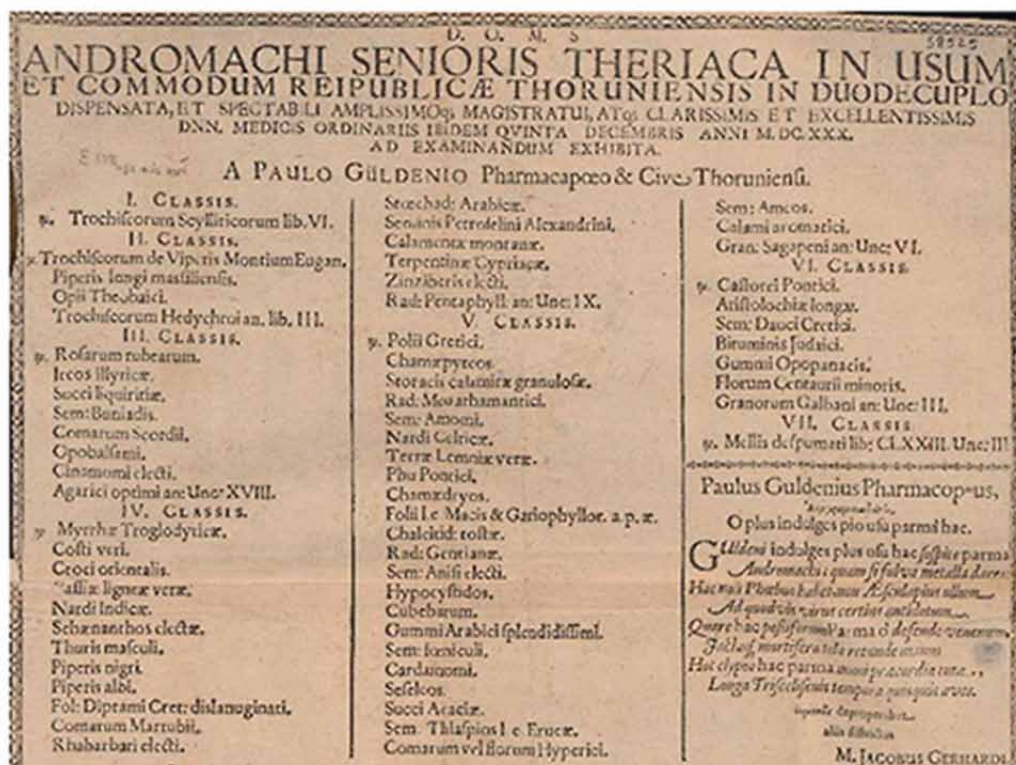 D. O. M. S
58525
ANDROMACHI SENIORIS THERIACA IN USUM
ET COMMODUM REIPUBLICÆ THORUNIENSIS IN DUODECUPLO
DISPENSATA, ET SPECTABILI AMPLISSIMOq; MAGISTRATUI, ATq; CLARISSIMIS ET EXCELLENTISSIMIS
DNN. MEDICIS ORDINARIIS IBIDEM QVINTA DECEMBRIS ANNI M.DC.XXX.
AD EXAMINANDUM EXHIBITA.
A PAULO GÜLDENIO Pharmacapœo & Cive Thoruniensi.
I. CLASSIS.
Trochiscorum Scylliticorum lib. VI.
II. CLASSIS.
Trochiscorum de Viperis Montium Eugan.
Piperis longi massiliensis.
Opii Thebaici.
Trochiscorum Hedychroi an. lib. III.
III. CLASSIS.
Rosarum rubearum.
Ireos illyricæ.
Succi liquiritiæ.
Sem: Buniadis.
Comarum Scordii.
Opobalsami.
Cinamomi electi.
Agarici optimi an: Unc: XVIII.
IV. CLASSIS.
Myrrhæ Troglodyticæ.
Costi veri.
Croci orientalis.
Cassiæ ligneæ veræ.
Nardi Indicæ.
Schænanthos electæ.
Thuris masculi.
Piperis nigri.
Piperis albi.
Fol: Diptami Cret: dislanuginati.
Comarum Marrubii.
Rhabarbari electi.
Stœchad: Arabicæ.
Seminis Petroselini Alexandrini.
Calamentæ montanæ.
Terpentinæ Cypriacæ.
Zinziberis electi.
Rad: Pentaphyll: an: Unc: IX.
V. CLASSIS.
Polii Cretici.
Chamæpyteos.
Storacis calamitæ granulosæ.
Rad: Meu athamantici.
Sem: Amomi.
Nardi Celticæ.
Terræ Lemniæ veræ.
Phu Pontici.
Chamædryos.
Folii I.e. Macis & Gariophyllor. a. p. æ.
Chalcitid: tostæ.
Rad: Gentianæ.
Sem: Anisi electi.
Hypocystidos.
Cubebarum.
Gummi Arabici splendidissimi.
Sem: fœniculi.
Cardamomi.
Seseleos.
Succi Acaciæ.
Sem: Thlaspios I.e. Erucæ.
Comarum vel florum Hyperici.
Sem: Ameos.
Calami aromatici.
Gran: Sagapeni an: Unc: VI.
VI. CLASSIS.
Castorei Pontici.
Aristolochiæ longæ.
Sem: Dauci Cretici.
Bituminis Judaici.
Gummi Opopanacis.
Florum Centaurii minoris.
Granorum Galbani an: Unc: III.
VII. CLASSIS
Mellis despumati lib: CLXXIII. Unc: III
Paulus Guldenius Pharmacopœus,
O plus indulges pio usu parmâ hac.
Guldeni indulges plus usu hac sospite parma
Andromachi: quam si fulva metalla dares
Hac nisi Phœbus habet aut Æsculapius ullum
Ad quodvis virus certius antidotum
Quare hac Parmâ defende
mortifera tela retunde
Hoc clypeo hac parma præcordia tuta
Longa tempora
M. JACOBUS GERHARDI